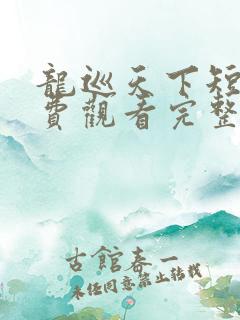 龍巡天下短
費觀看完整
古館春一
未經同意禁止轉載